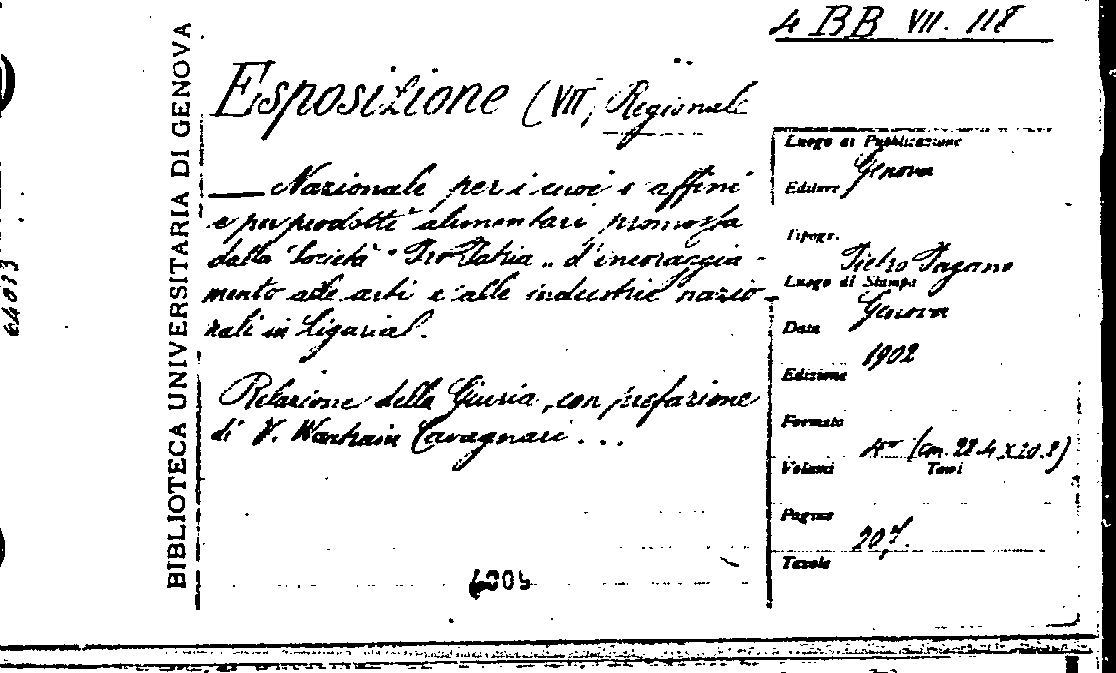 4 BB VII. 118
BIBLIOTECA UNIVERSITARIA DI GENOVA
Esposizione (VII) Regionale
Nazionale per i cuoi e affini
e per prodotti alimentari promossa
dalla Società "Pro Patria" d'incoraggia-
mento alle arti e alle industrie nazio-
nali in Liguria.
Relazione della Giuria, con prefazione
di V. Warhain Cavagnari...
4009
Luogo di Pubblicazione
Genova
Editore
Tipogr.
Pietro Pagano
Luogo di Stampa
Genova
Data
1902
Edizione
Formato
4º (cm. 28.4 x 20.8)
Volumi Tomi
Pagine
207.
Tavole